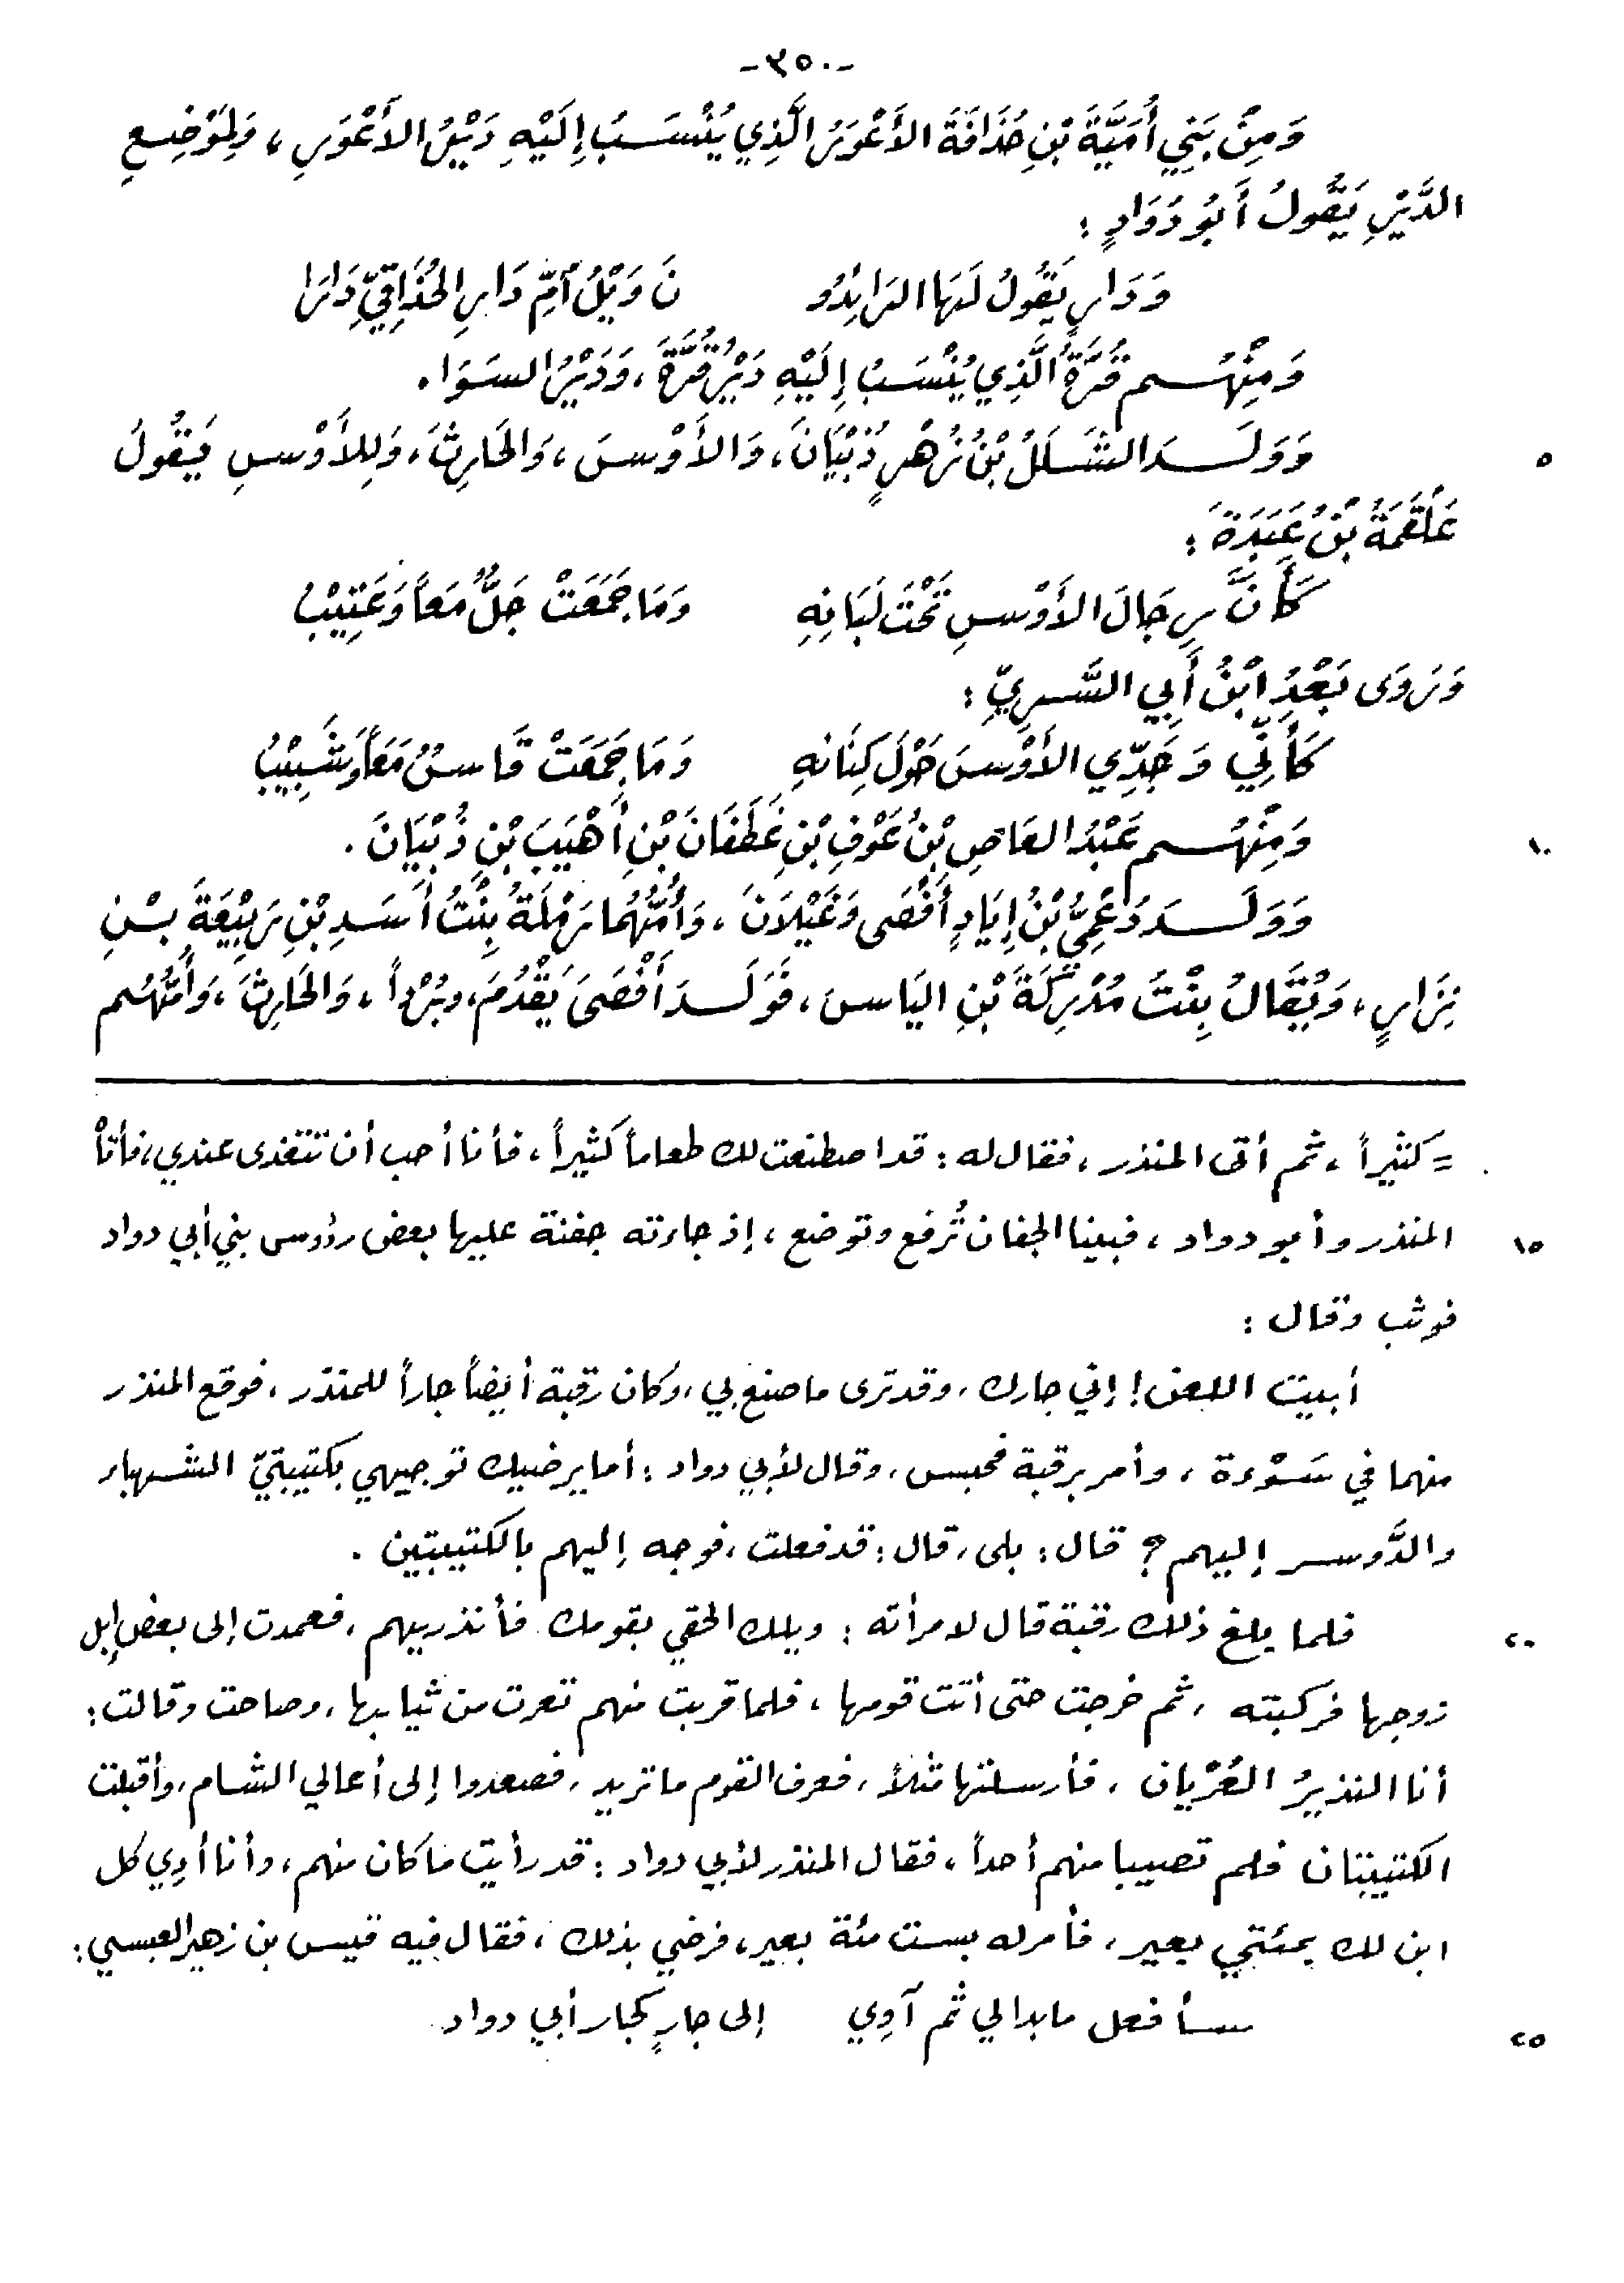 -٣٥٠-
وَمِنْ بَنِي أُمَيَّةَ بْنِ حُذَافَةَ الأَعْوَرُ الَّذِي يُنْسَبُ إِلَيْهِ دَيْرُ الأَعْوَرِ ، وَلِمَوْضِعِ
الدَّيْرِ يَقُولُ أَبُو دُوَادٍ :
وَدَارٍ يَقُولُ لَهَا الرَائِدُو نَ وَيْلُ أُمِّ دَارِ الحُذَاقِيِّ دَارَا
وَمِنْهُم قُرَّةُ الَّذِي يُنْسَبُ إِلَيْهِ دَيْرُ قُرَّةَ ، وَدَيْرُ السَوَا .
٥ وَوَلَدَ الشَلَلُ بْنُ زُهْرٍ ذُبْيَانَ ، وَالأَوْسَ ، وَالحَارِثَ ، وَلِلأَوْسِ يَقُولُ
عَلْقَمَةُ بْنُ عَبَدَةَ :
كَأَنَّ رِجَالَ الأَوْسِ تَحْتَ لَبَانِهِ وَمَا جَمَعَتْ جَلٌّ مَعاً وَعَتِيْبُ
وَرَوَى بَعْدُ ابْنُ أَبِي السَّرِيِّ :
كَأَنِّي وَجَدِّي الأَوْسَ حَوْلَ كِنَانهِ وَمَا جَمَعَتْ قَاسٌ مَعَاً وَشَبِيْبُ
١٠ وَمِنْهُم عَبْدُ العَاصِ بْنُ عَوْفِ بْنِ غَطَفَانَ بْنِ أَهْيَبَ بْنِ ذُبْيَانَ .
وَوَلَدَ دُعْمِيُّ بْنُ إِيَادٍ أَفْصَى وَغَيْلَانَ ، وَأُمُّهُمَا رَمْلَةُ بِنْتُ أَسَدِ بْنِ رَبِيْعَةَ بْنِ
نِزَارٍ ، وَيُقَالُ بِنْتُ مُدْرِكَةَ بْنِ اليَاسَ ، فَوَلَدَ أَفْصَىَ يَقْدُمَ ، وبُرْداً ، وَالحَارِثَ ، وَأُمُّهُم
= كثيراً ، ثم أتى المنذر ، فقال له : قد اصطنعت لك طعاماً كثيراً ، فأنا أحب أن تتغدى عندي ، فأتاْ
١٥ المنذر وأبو دواد ، فبينا الجفان تُرفع وتوضع ، إذ جاءته جفنة عليها بعض رؤوس بني أبي دواد
فوثب وقال :
أبيت اللعن ! إني جارك ، وقد ترى ما صنع بي ، وكان رقبة أيضاً جاراً للمنذر ، فوقع المنذر
منهما في سَوْءة ، وأمر برقبة فحبس ، وقال لأبي دواد : أما يرضيك توجيهي بكتيبتيّ الشهباء
والدَّوسر إليهم ؟ قال : بلى ، قال : قد فعلت ، فوجه إليهم بالكتيبتين .
٢٠ فلما بلغ ذلك رقبة قال لامرأته : ويلك الحقي بقومك فأنذريهم ، فعمدت إلى بعض إبل
زوجها فركبته ، ثم خرجت حتى أتت قومها ، فلما قربت منهم تعرت من ثيابها ، وصاحت وقالت :
أنا النذيرُ العُرْيان ، فأرسلتها مثلاً ، فعرف القوم ما تريد ، فصعدوا إلى أعالي الشام ، وأقبلت
الكتيبتان فلم تصيبا منهم أحداً ، فقال المنذر لأبي دواد : قد رأيت ما كان منهم ، وأنا أدِي كل
ابن لك بمئتي بعير ، فأمر له بست مئة بعير ، فرضي بذلك ، فقال فيه قيس بن زهير العبسي :
٢٥ سأفعل ما بدا لي ثم آوِي إلى جارٍ كجار أبي دواد